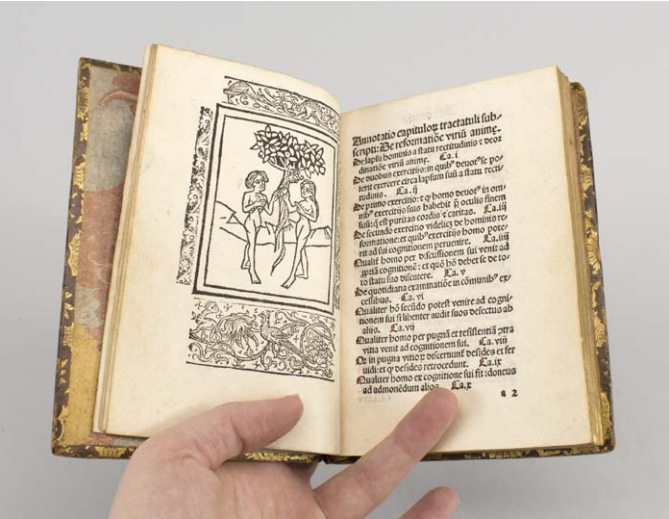 Annotatio capituloꝝ tractatuli sub-
scripti: De reformatiōe viriū animę.
De lapsu hominis a statu rectitudinis ⁊ deor
dinatiōe viriū animę. Ca. i
De duobus exercitijs: in quibꝰ deuotꝰ se po/
terit exercere circa lapsum suū a statu recti/
tudinis. Ca. ij
De primo exercitio: ⁊ ꝙ homo deuotꝰ in om/
nibꝰ exercitijs suis habebit p̄ oculis finem
suū: q̄ est puritas cordis ⁊ caritas. Ca. iij
De secundo exercitio videlicꝫ de hominis re/
formatione: et quibꝰ exercitijs homo pote/
rit ad sui cognitionem peruenire. Ca. iiij
Qualiť homo per discussionem sui venit ad
ꝓpriā cognitionē: et quō hō debet se de to/
to statu suo discutere. Ca. v
De quotidiana examinatiōe in cōmunibꝰ ex/
cessibus. Ca. vi
Qualiter hō secūdo potest venire ad cogni/
tionem sui si libenter audit suos defectus ab
alijs. Ca. vij
Qualiter homo per pugnā et resistentiā ꝯtra
vitia venit ad cognitionem sui. Ca. viij
Qꝫ in pugna vitioꝝ discernunť desides et fer
uidi: et ꝙ desides retrocedunt. Ca. ix
Qualiter homo ex cognitione sui fit idoneus
ad admonēdum alios. Ca. x
a 2